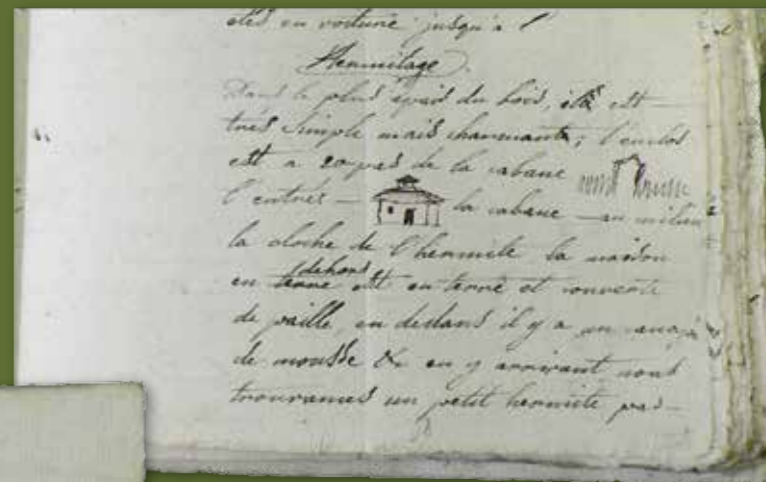 etés en voiture jusqu'a l'
Hermitage.
Dans le plus épais du bois, il est
très simple mais charmante ; l'enclos
est a 20 pas de la cabane
l'entrée — la cabane — au milieu
la cloche de l'hermite la maison
en terre dehors est en terre et couverte
de paille, en dedans il y a un canapé
de mousse & en y arrivant nous
trouvames un petit hermite pas-